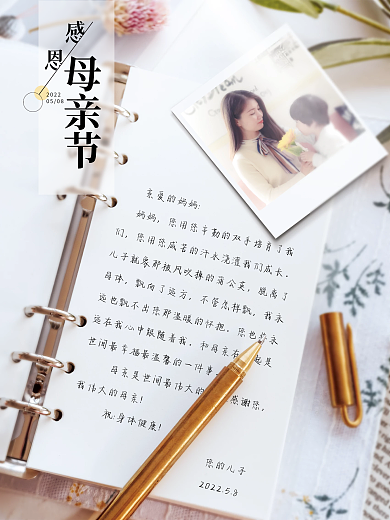 感恩
母亲节
2022
05/08
亲爱的妈妈:
妈妈,您用您辛勤的双手培育了我
们,您用您咸苦的汗水浇灌我们成长。
儿子就象那被风吹拂的蒲公英,脱离了
母体,飘向了远方,不管怎样飘,我永
远也飘不出您那温暖的怀抱,您也永
远在我心中跟随着我,和母亲在 是
世间最幸福最温馨的一件事
母亲是世间最伟大的 感谢您,
我伟大的母亲!
祝:身体健康!
您的儿子
2022.5.8